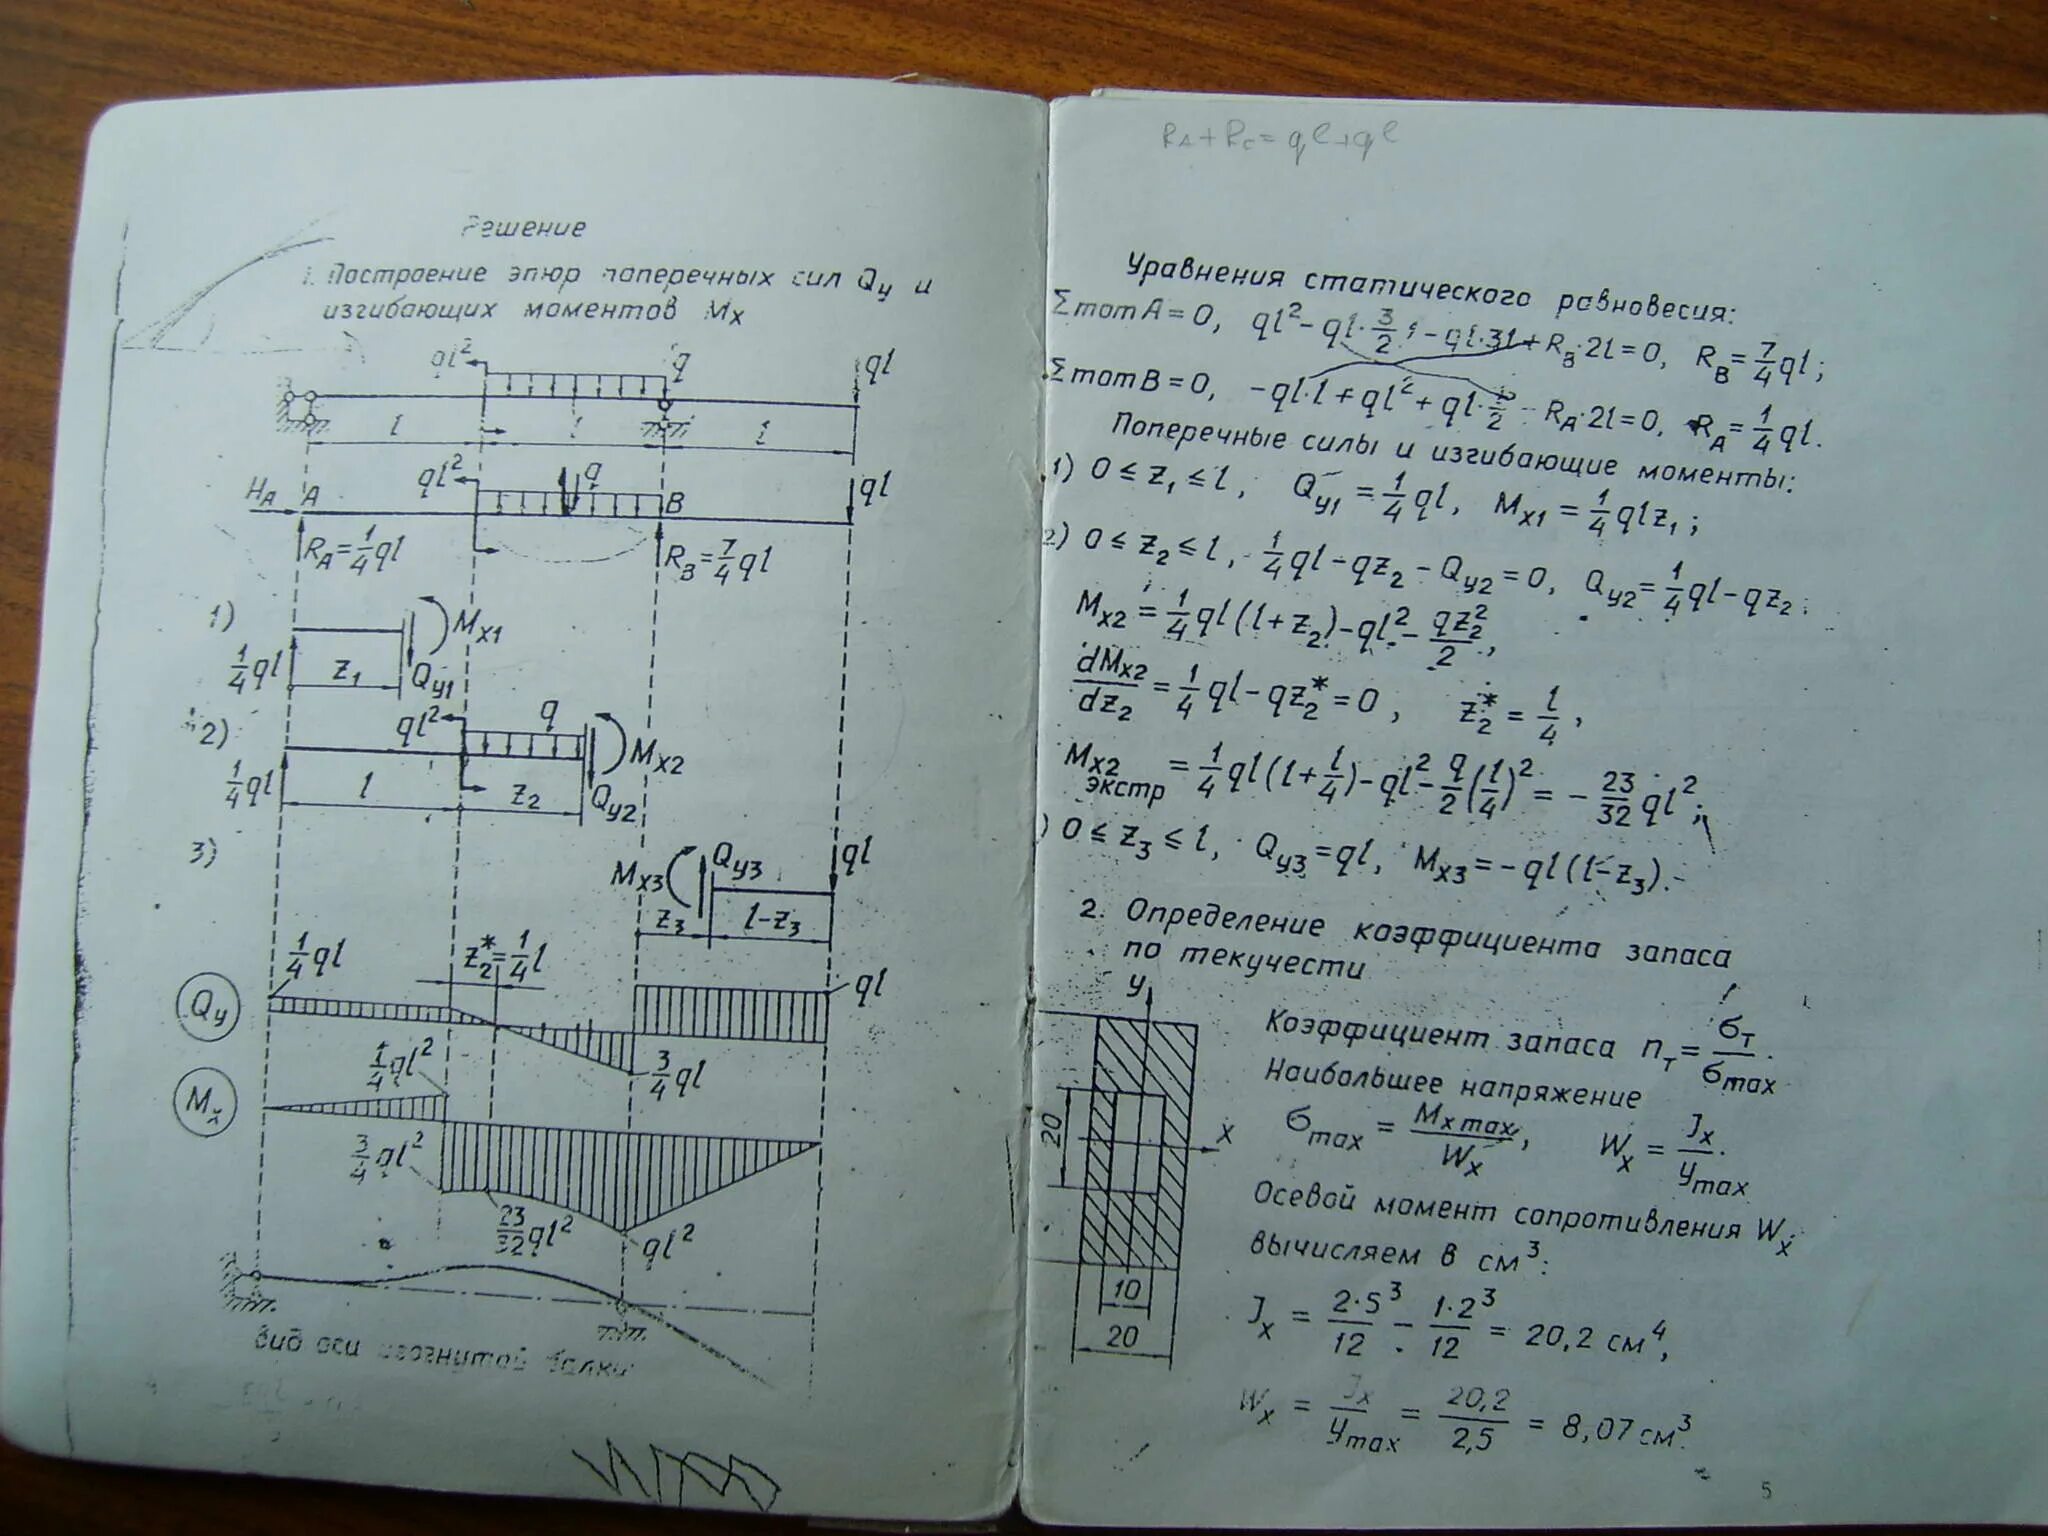 Решение
1. Построение эпюр поперечных сил Qy и
изгибающих моментов Mx
ql² q ql
l l l
ql² q ql
HA A B
RA=1/4ql RB=7/4ql
1) Mx1
1/4ql z1 Qy1
2) ql² q Mx2
1/4ql l z2 Qy2
3) Mx3 Qy3 ql
z3 l-z3
1/4ql z2*=1/4l ql
Qy
3/4ql
1/4ql²
Mx
3/4ql²
23/32ql² ql²
вид оси изогнутой балки
RA+RC=ql+ql
Уравнения статического равновесия:
Σmom A=0, ql²-ql·3/2l-ql·3l+RB·2l=0, RB=7/4ql;
Σmom B=0, -ql·l+ql²+ql·l/2-RA·2l=0, RA=1/4ql.
Поперечные силы и изгибающие моменты:
1) 0≤z1≤l, Qy1=1/4ql, Mx1=1/4qlz1;
2) 0≤z2≤l, 1/4ql-qz2-Qy2=0, Qy2=1/4ql-qz2;
Mx2=1/4ql(l+z2)-ql²-qz2²/2,
dMx2/dz2=1/4ql-qz2*=0, z2*=l/4,
Mx2 экстр=1/4ql(l+l/4)-ql²-q/2(l/4)²=-23/32ql²;
) 0≤z3≤l, Qy3=ql, Mx3=-ql(l-z3).
2. Определение коэффициента запаса
по текучести
y
Коэффициент запаса nт=σт/σmax.
Наибольшее напряжение
x
20
σmax=Mx max/Wx, Wx=Jx/ymax.
Осевой момент сопротивления Wx
вычисляем в см³:
10
20
Jx=2·5³/12-1·2³/12=20,2 см⁴,
Wx=Jx/ymax=20,2/2,5=8,07 см³.
5